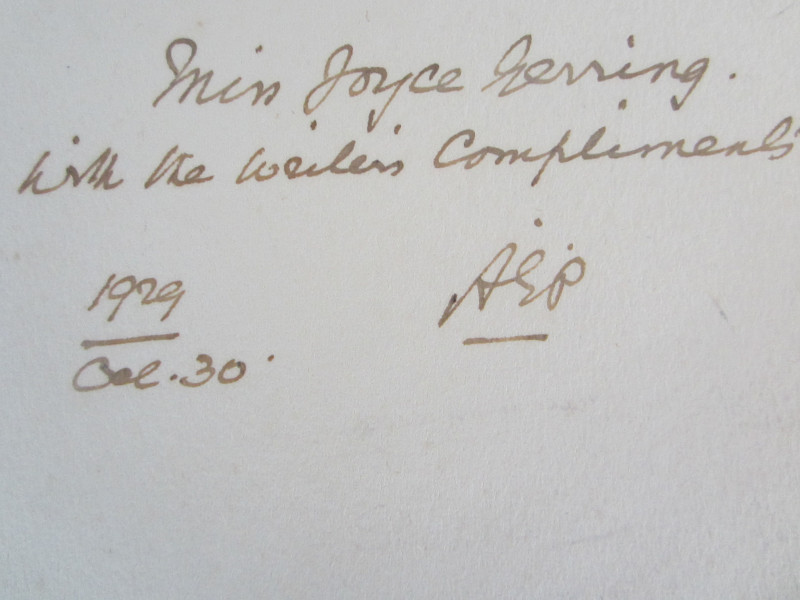 Miss Joyce Gerring.
With the Writer's Compliments
1929
Oct. 30.
AEP